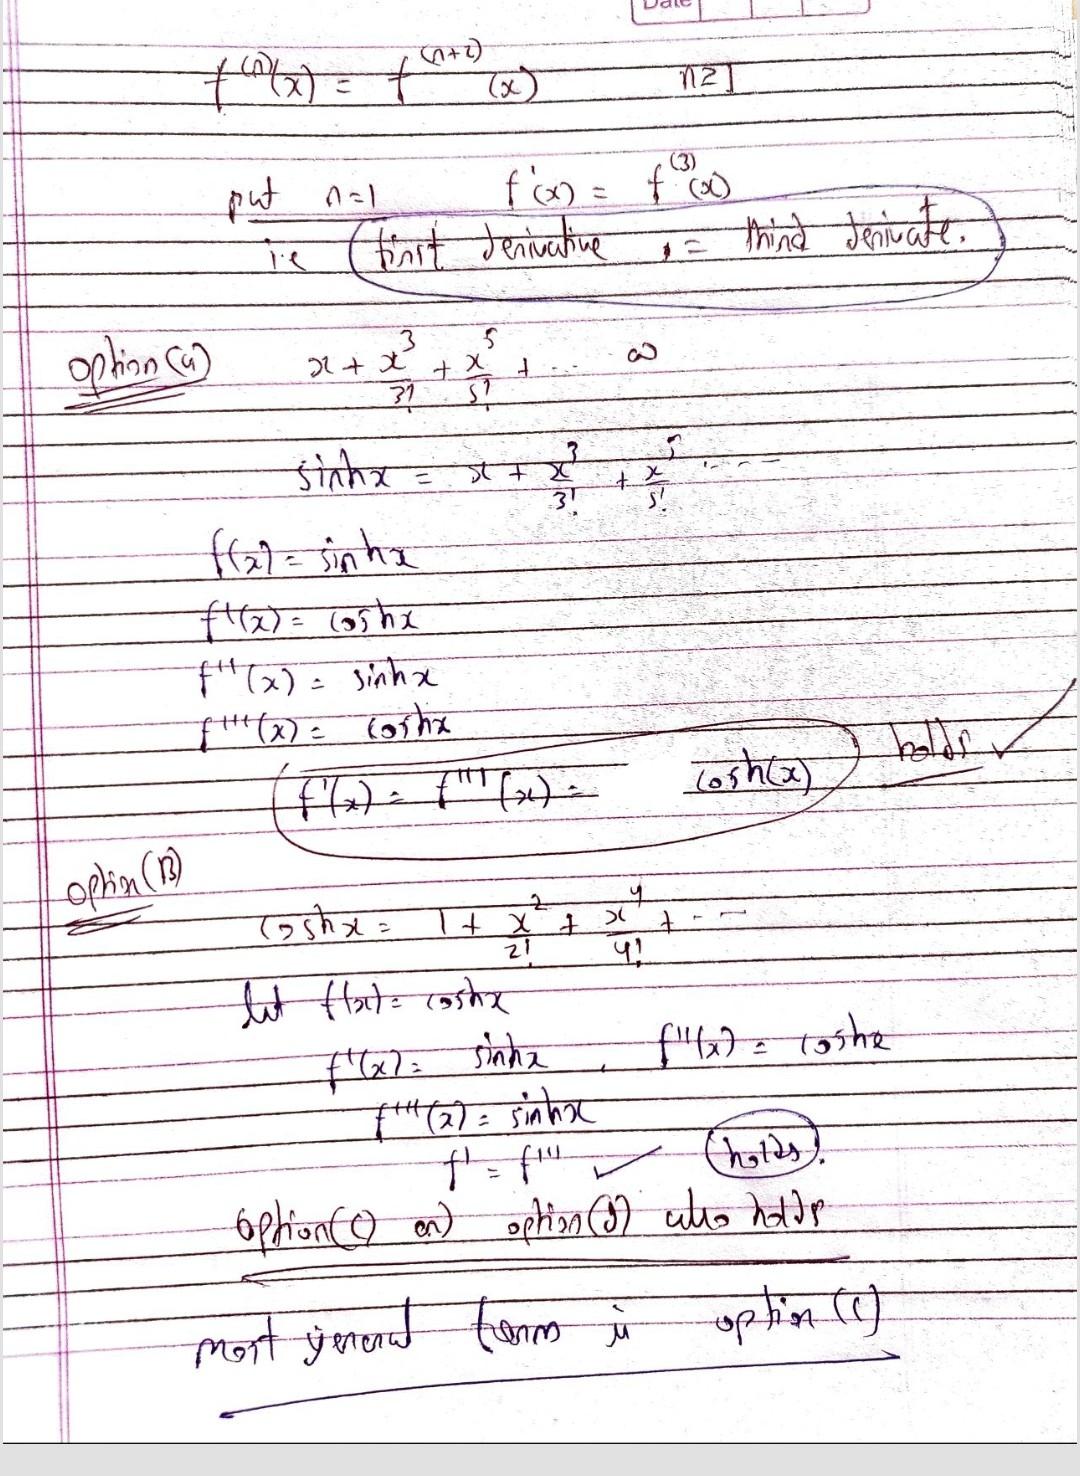 Date
f⁽ⁿ⁾(x) = f⁽ⁿ⁺²⁾(x) n≥1
put n=1 f'(x) = f⁽³⁾(x)
i.e first derivative = third derivate.
option (a) x + x³/3! + x⁵/5! + ... ∞
sinhx = x + x³/3! + x⁵/5! ....
f(x) = sinhx
f'(x) = coshx
f''(x) = sinhx
f'''(x) = coshx
f'(x) = f'''(x) = cosh(x) holds ✓
option (B)
coshx = 1 + x²/2! + x⁴/4! + ---
let f(x) = coshx
f'(x) = sinhx , f''(x) = coshx
f'''(x) = sinhx
f' = f''' ✓ holds.
option(C) option(D) also holds
most general form is option (C)